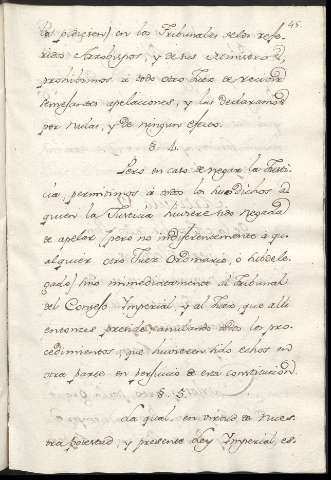 45.
los pidiesen) en los Tribunales de los refe-
ridos Arzobispos, y de sus
prohibimos à todo otro Juez de recivir
semejantes apelaciones, y las declaramos
por nulas, y de ningun efecto.
§. 4.
Pero en caso de negar la Justi-
cia, permitimos à todos los
quien la Justicia huviere sido negada
de apelar (pero no indiferentemente a qu-
alquier otro Juez Ordinario, ò subdele-
gado) sino immediatamente al Tribunal
del Consejo Imperial, y al Juez, que alli
entonces preside, anulando todos los pro-
cedimientos, que huvieren sido echos en
otra parte en perjuicio de esta constitucion.
§. 5.
La qual, en virtud de nues-
tra potestad, y presente Ley Imperial, es-